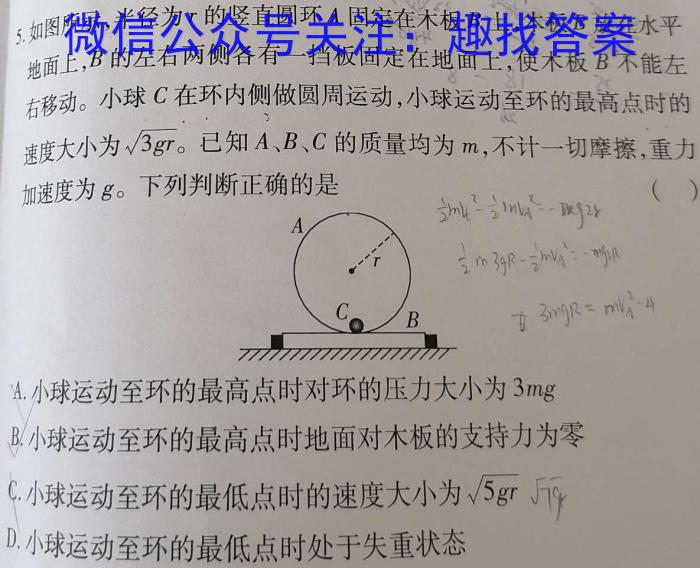 5.如图所示,半径为r的竖直圆环A固定在木板B上,木板B放在水平
微信公众号关注：趣找答案
地面上,B的左右两侧各有一挡板固定在地面上,使木板B不能左
右移动。小球C在环内侧做圆周运动,小球运动至环的最高点时的
速度大小为√3gr。已知A、B、C的质量均为m,不计一切摩擦,重力
加速度为g。下列判断正确的是 ( )
A
r
C
B
A.小球运动至环的最高点时对环的压力大小为3mg
B.小球运动至环的最高点时地面对木板的支持力为零
C.小球运动至环的最低点时的速度大小为√5gr
D.小球运动至环的最低点时处于失重状态